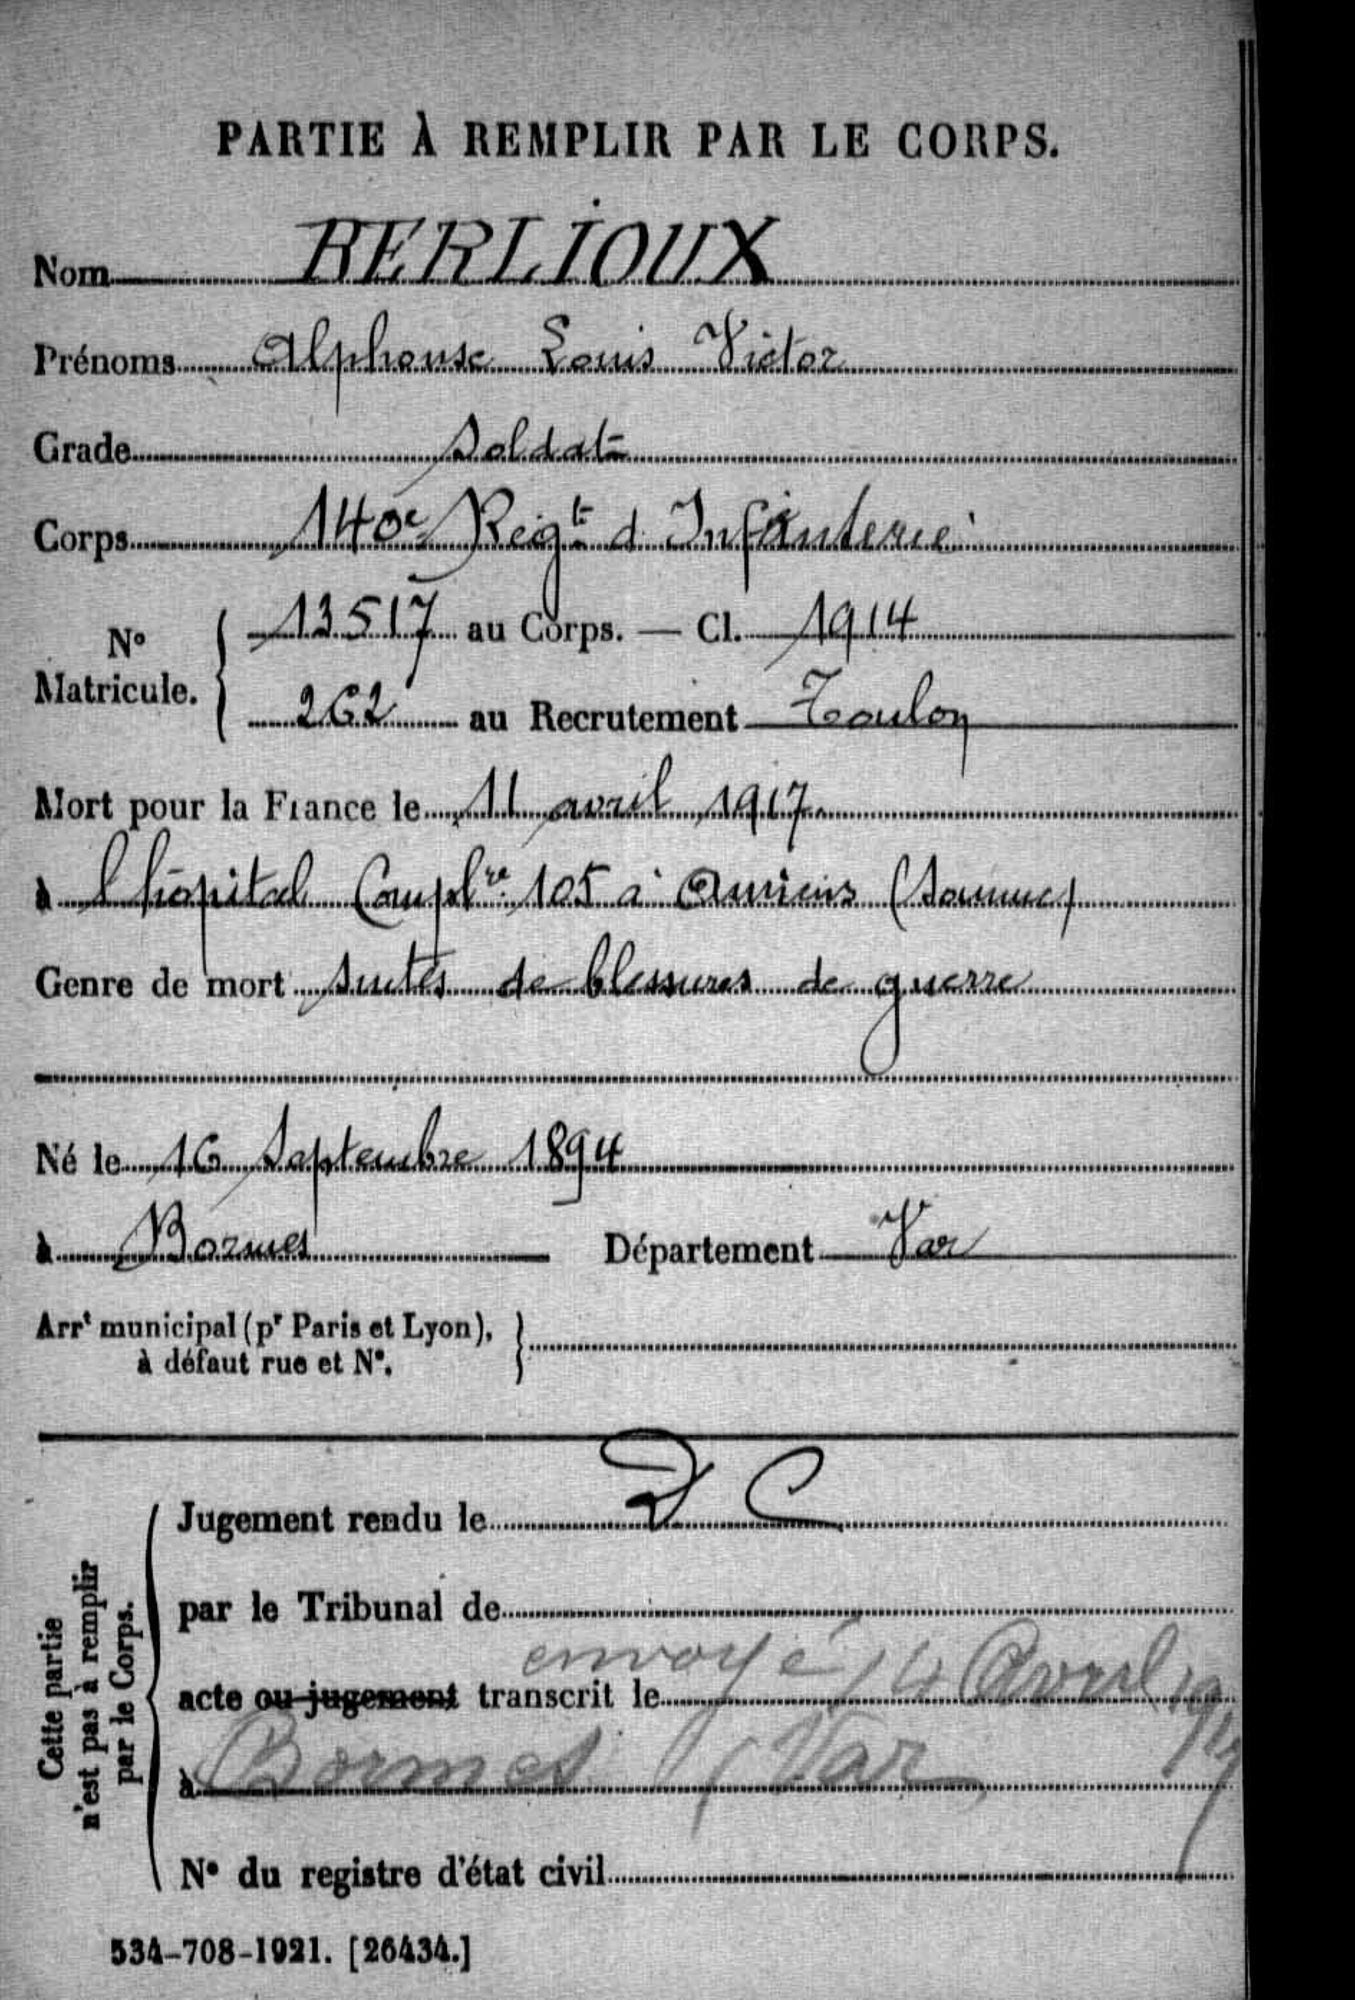 PARTIE À REMPLIR PAR LE CORPS.
Nom BERLIOUX
Prénoms Alphonse Louis Victor
Grade Soldat
Corps 140e Régt d'Infanterie
No Matricule. { 13517 au Corps. — Cl. 1914
262 au Recrutement Toulon
Mort pour la France le 11 avril 1917
à l'hôpital Complre 105 à Amiens (Somme)
Genre de mort suites de blessures de guerre
Né le 16 Septembre 1894
à Bormes Département Var
Arrt municipal (pr Paris et Lyon), }
à défaut rue et No.
Cette partie
n'est pas à remplir
par le Corps.
Jugement rendu le D C
par le Tribunal de
envoyé 14 Avril 1917
acte ou jugement transcrit le
à Bormes (Var)
No du registre d'état civil
534-708-1921. [26434.]